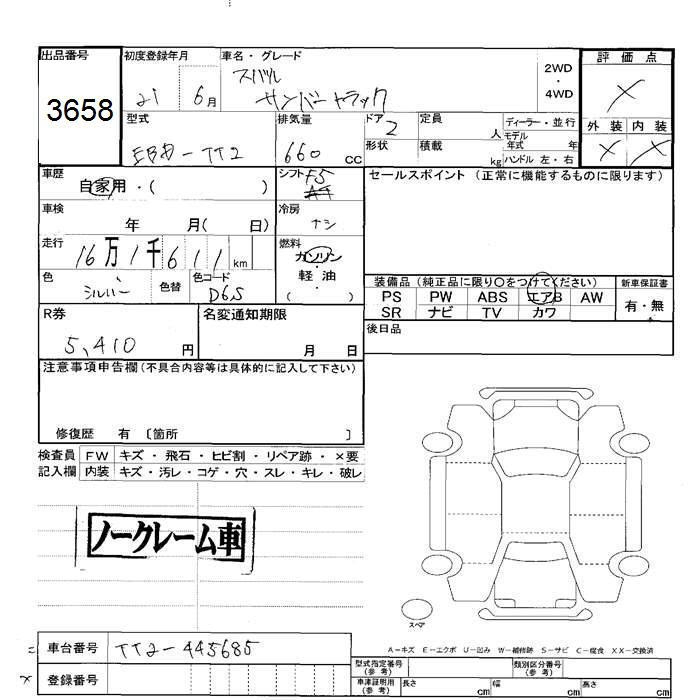 出品番号
3658
初度登録年月
21 6月
車名・グレード
スバル
サンバートラック
2WD
・
4WD
評価点
×
外装 内装
× ×
型式
EBD-TT2
排気量
660 CC
ドア 2
形状
定員 人
積載 kg
ディーラー・並行
モデル年式 年
ハンドル 左・右
車歴
自家用・( )
シフト F5
AT
セールスポイント (正常に機能するものに限ります)
車検
年 月( 日)
冷房
ナシ
走行
16万1千611km
燃料
ガソリン
・
軽油
( )
色
シルバー
色替
色コード
D6S
装備品 (純正品に限り○をつけてください)
PS PW ABS エアB AW
SR ナビ TV カワ
新車保証書
有・無
R券
5,410 円
名変通知期限
月 日
後日品
注意事項申告欄(不具合内容等は具体的に記入して下さい)
修復歴 有 〔箇所 〕
検査員記入欄
FW キズ・飛石・ヒビ割・リペア跡・×要
内装 キズ・汚レ・コゲ・穴・スレ・キレ・破レ
ノークレーム車
スペア
A-キズ E-エクボ U-凹み W-補修跡 S-サビ C-腐食 XX-交換済
= 車台番号 TT2-445685
× 登録番号
型式指定番号(参考)
類別区分番号(参考)
車庫証明用(参考) 長さ cm 幅 cm 高さ cm